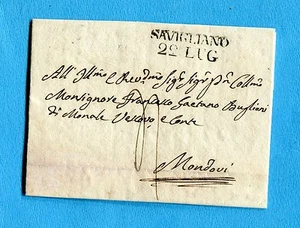 SAVIGLIANO
22 LUG
All' Ill.mo e Rev.mo Sig.r Sig.r P.n Coll.mo
Monsignore Francesco Gaetano Buglioni
di Monale Vescovo, e Conte
Mondovì